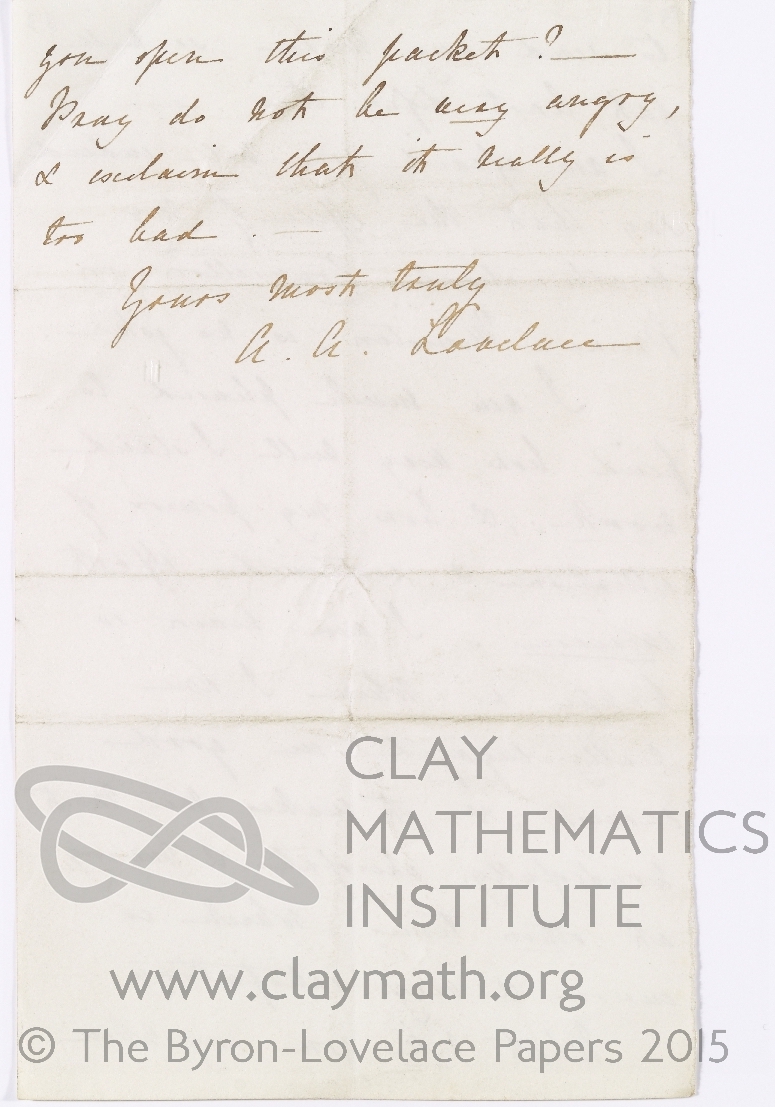 you open this packet? —
Pray do not be very angry,
& exclaim that it really is
too bad. —
Yours most truly
A. A. Lovelace
CLAY
MATHEMATICS
INSTITUTE
www.claymath.org
© The Byron-Lovelace Papers 2015